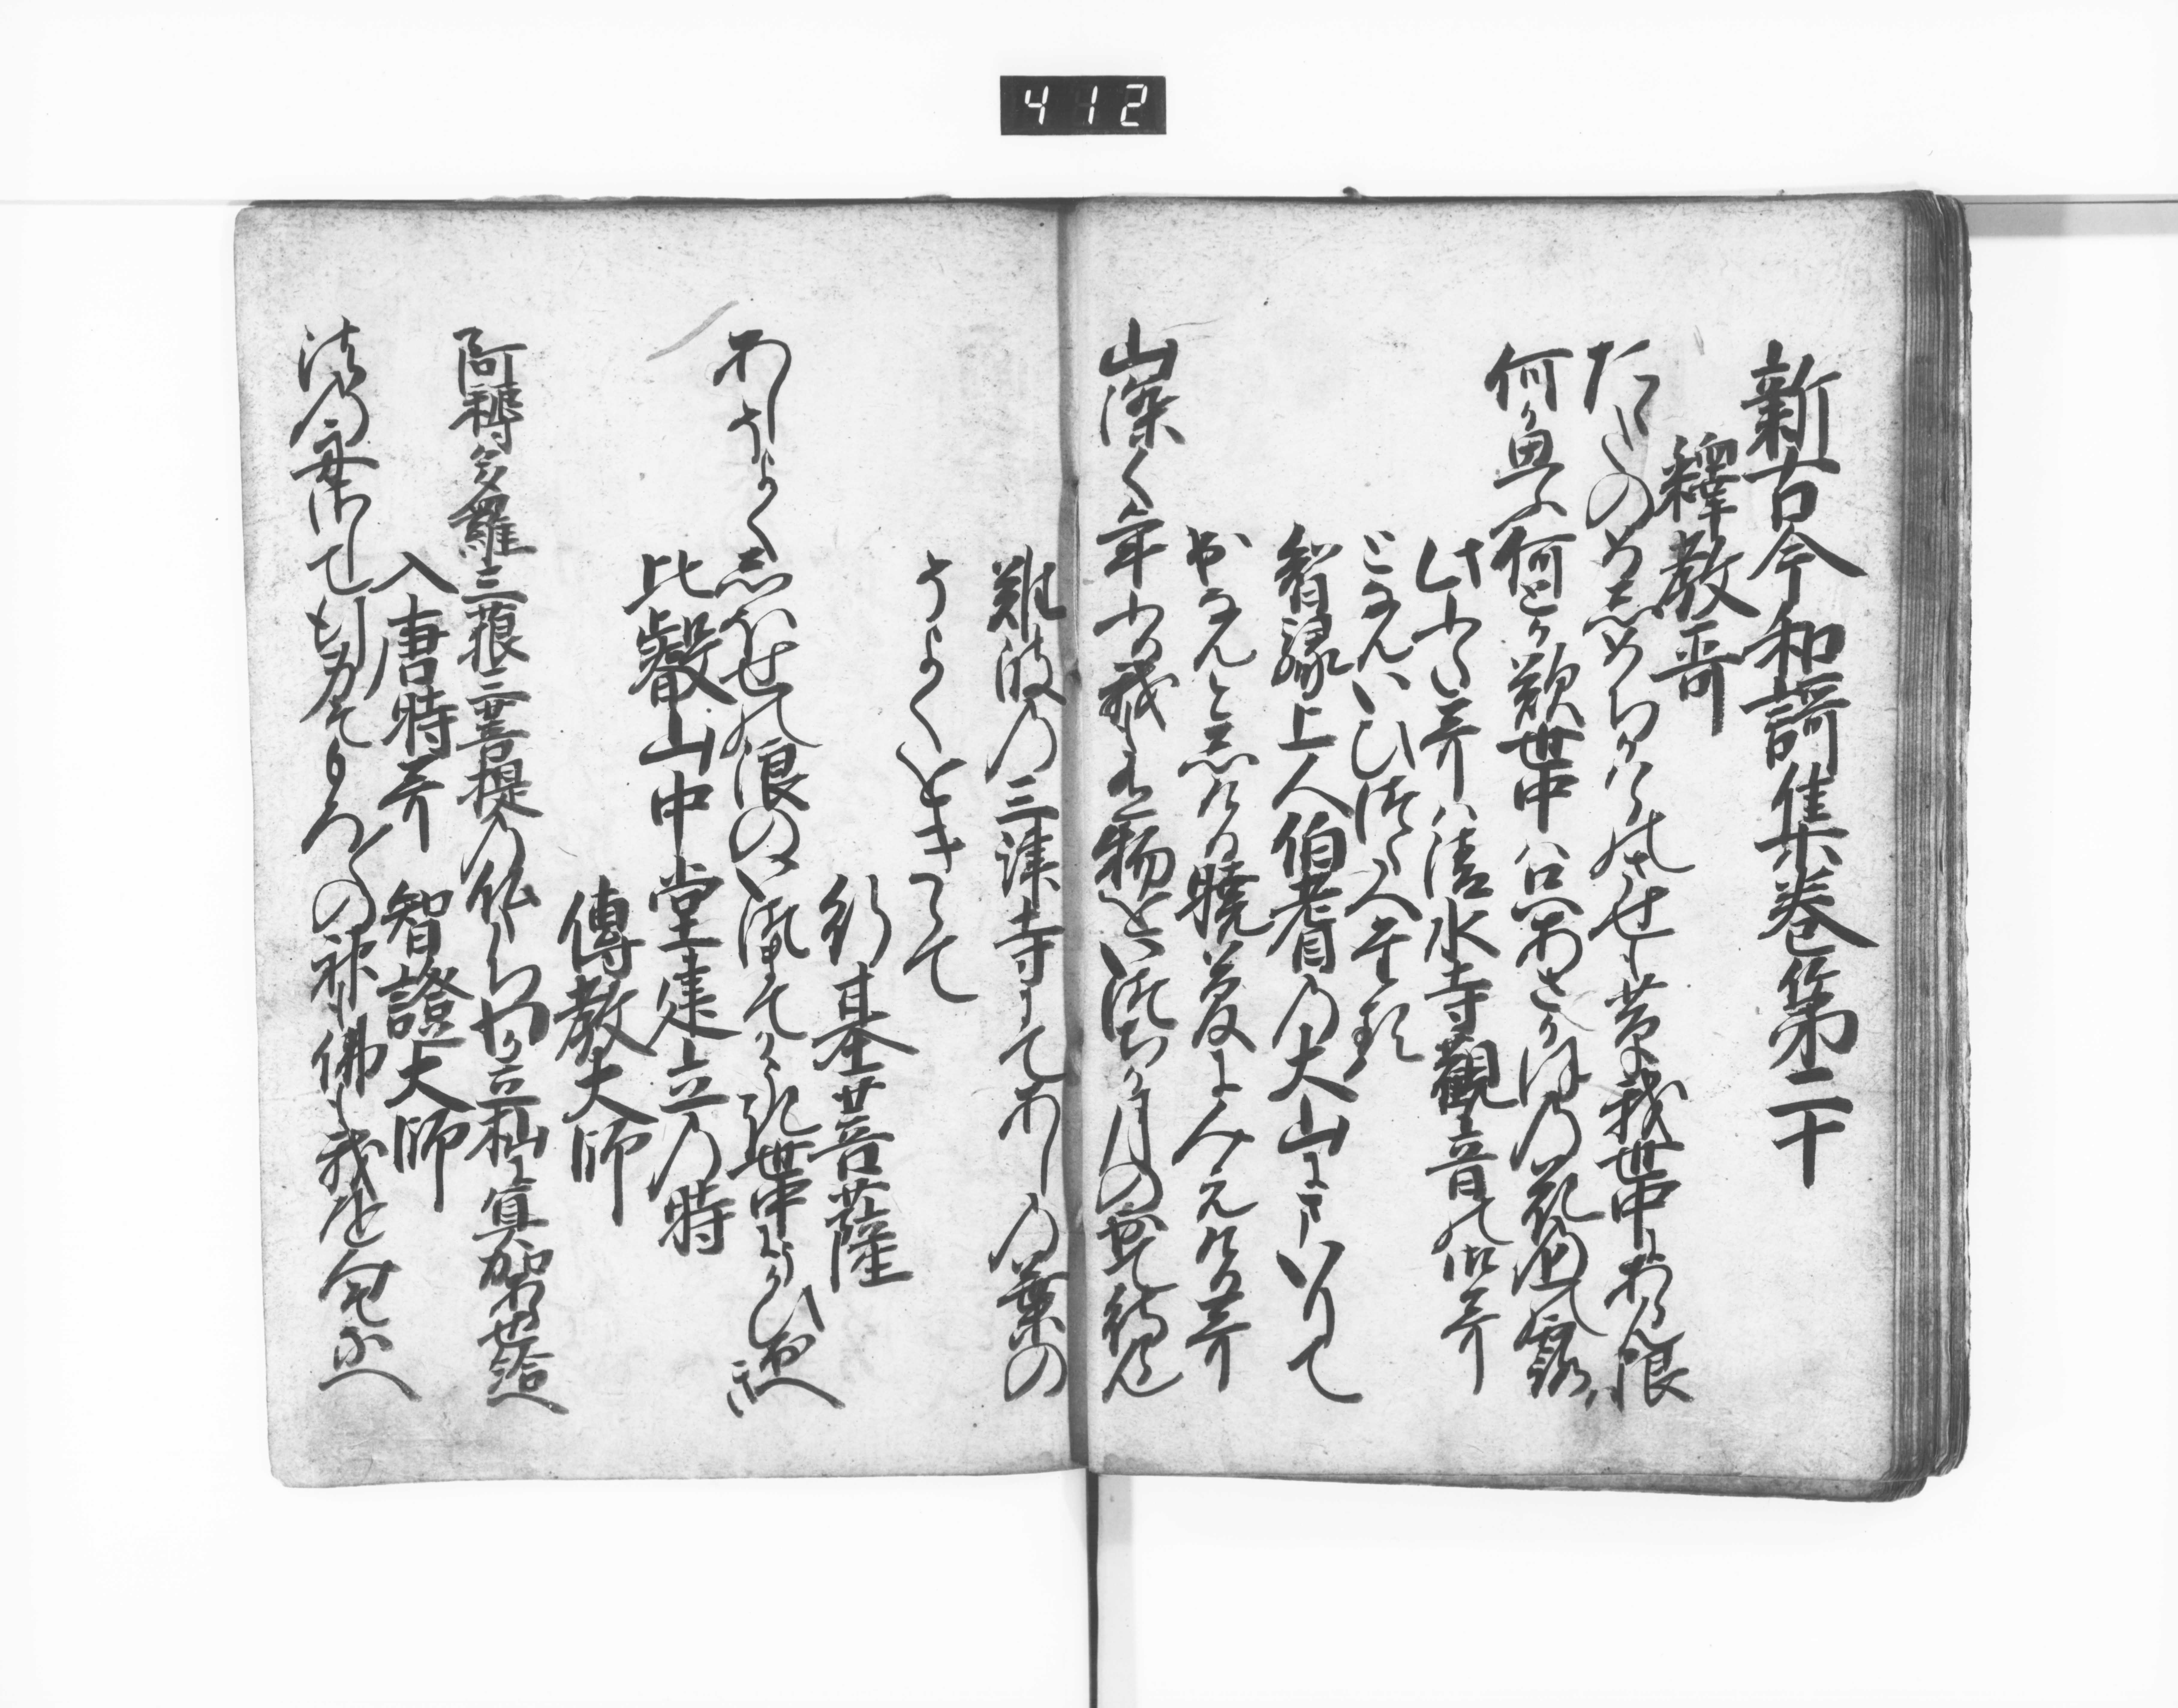 412
新古今和謌集巻第二十
釋教哥
たゝたのめしめちかはらのさせも草我世中にあらん限は
何か思ふ何とか歎世中は只あさかほの花の上の露
此ふたうた哥は清水寺觀音の御哥
となんいひつたへたる
智縁上人伯耆の大山にまいりて
いてなんとしける曉夢にみえける哥
山深く年ふる我も有物をいつちか月の出て行らん
難波の三津寺にてあしの葉の
そよくをきゝて
行基菩薩
あしそよくしほせの浪のいつまてかうき世中にうかひ渡らん
比叡山中堂建立の時
傳教大師
阿耨多羅三藐三菩提の仏たち我立杣に冥加あらせ給へ
入唐時哥　智證大師
法の舟さして行身そもろ〳〵の神も佛も我をみそなへ